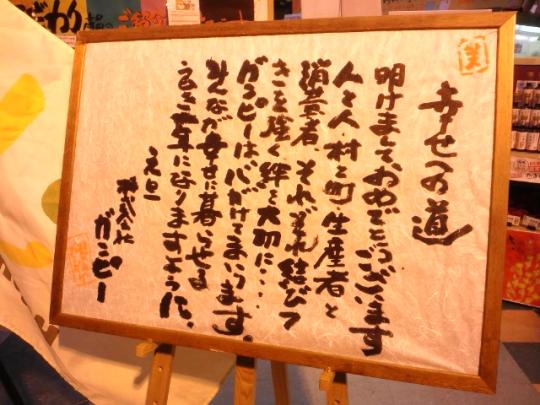 幸せへの道
明けましておめでとうございます
人と人・村と町 生産者と
消費者 それぞれ結びつ
きを強く絆を大切に・・・
ガッピーは、心がけてまいります。
みんなが幸せに暮らせる
よき草になりますように、
元旦
株式会社
ガッピー